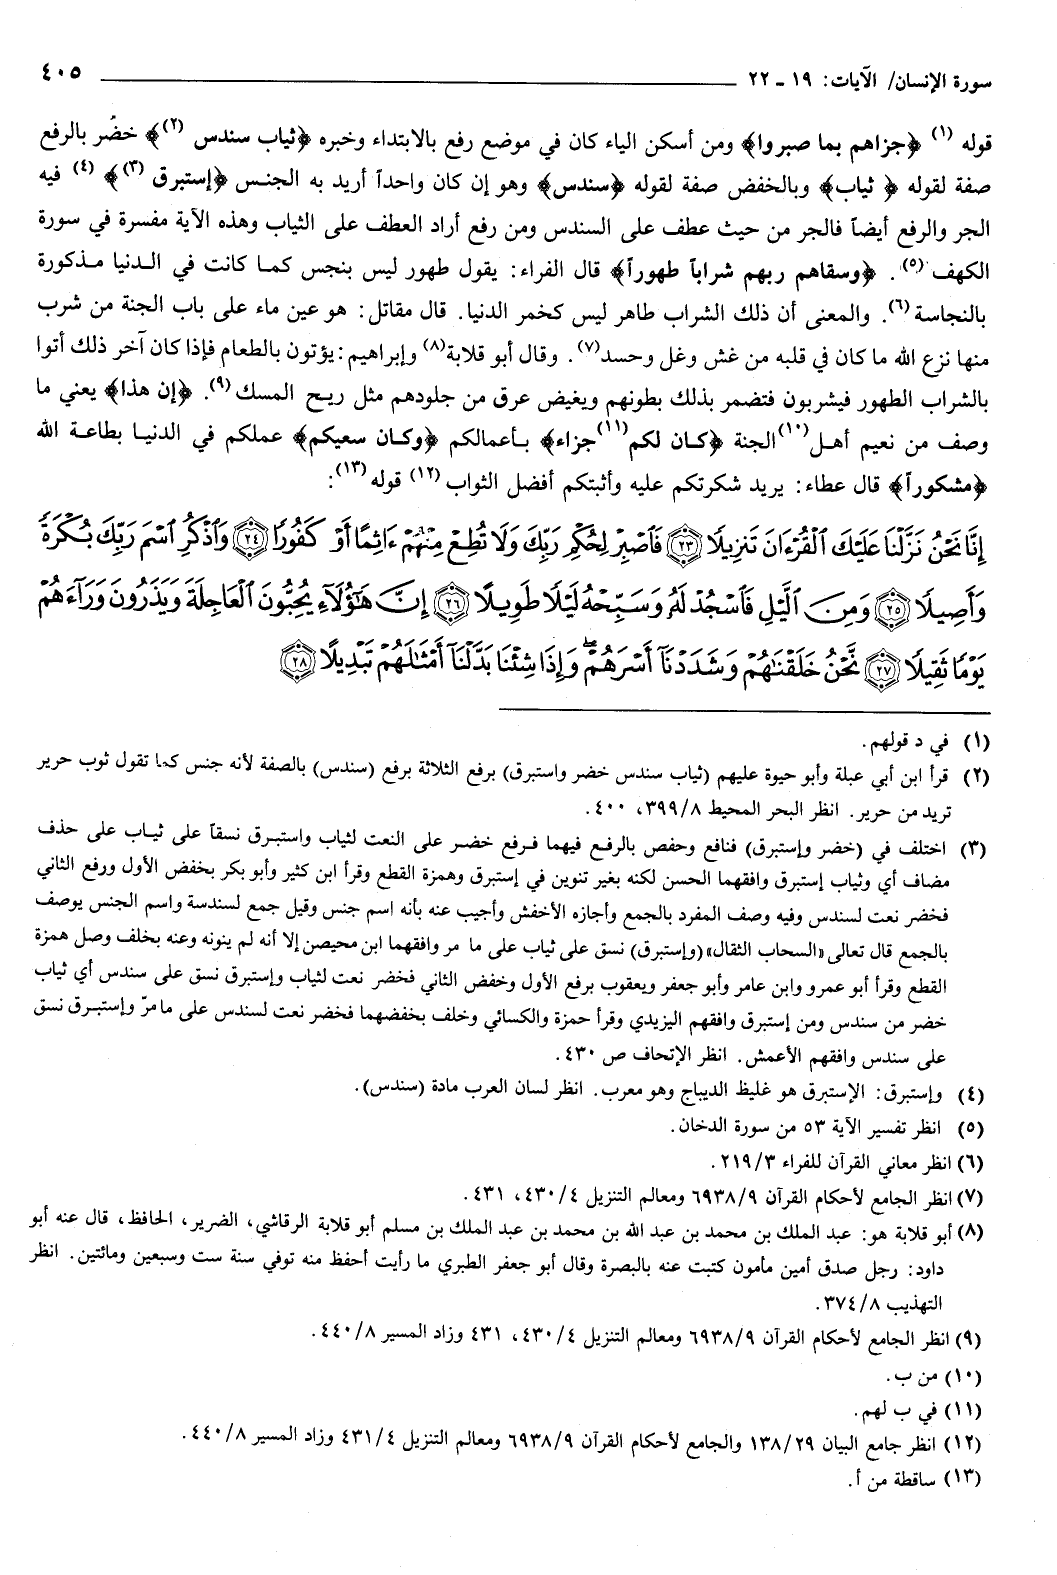 سورة الإنسان/ الآيات: ١٩ ـ ٢٢ ٤٠٥
قوله (١) ﴿جزاهم بما صبروا﴾ ومن أسكن الياء كان في موضع رفع بالابتداء وخبره ﴿ثياب سندس (٢)﴾ خضُر بالرفع
صفة لقوله ﴿ ثياب﴾ وبالخفض صفة لقوله ﴿سندس﴾ وهو إن كان واحداً أريد به الجنس ﴿إستبرق (٣)﴾ (٤) فيه
الجر والرفع أيضاً فالجر من حيث عطف على السندس ومن رفع أراد العطف على الثياب وهذه الآية مفسرة في سورة
الكهف (٥). ﴿وسقاهم ربهم شراباً طهوراً﴾ قال الفراء: يقول طهور ليس بنجس كما كانت في الدنيا مذكورة
بالنجاسة (٦). والمعنى أن ذلك الشراب طاهر ليس كخمر الدنيا. قال مقاتل: هو عين ماء على باب الجنة من شرب
منها نزع الله ما كان في قلبه من غش وغل وحسد(٧). وقال أبو قلابة(٨) وإبراهيم: يؤتون بالطعام فإذا كان آخر ذلك أتوا
بالشراب الطهور فيشربون فتضمر بذلك بطونهم ويغيض عرق من جلودهم مثل ريح المسك(٩). ﴿إن هذا﴾ يعني ما
وصف من نعيم أهل(١٠) الجنة ﴿كان لكم(١١)جزاء﴾ بأعمالكم ﴿وكان سعيكم﴾ عملكم في الدنيا بطاعة الله
﴿مشكوراً﴾ قال عطاء: يريد شكرتكم عليه وأثبتكم أفضل الثواب (١٢) قوله(١٣):
إِنَّا نَحْنُ نَزَّلْنَا عَلَيْكَ ٱلْقُرْءَانَ تَنزِيلًا ﴿٢٣﴾ فَٱصْبِرْ لِحُكْمِ رَبِّكَ وَلَا تُطِعْ مِنْهُمْ ءَاثِمًا أَوْ كَفُورًا ﴿٢٤﴾ وَٱذْكُرِ ٱسْمَ رَبِّكَ بُكْرَةً
وَأَصِيلًا ﴿٢٥﴾ وَمِنَ ٱلَّيْلِ فَٱسْجُدْ لَهُۥ وَسَبِّحْهُ لَيْلًا طَوِيلًا ﴿٢٦﴾ إِنَّ هَٰٓؤُلَآءِ يُحِبُّونَ ٱلْعَاجِلَةَ وَيَذَرُونَ وَرَآءَهُمْ
يَوْمًا ثَقِيلًا ﴿٢٧﴾ نَّحْنُ خَلَقْنَٰهُمْ وَشَدَدْنَآ أَسْرَهُمْ ۖ وَإِذَا شِئْنَا بَدَّلْنَآ أَمْثَٰلَهُمْ تَبْدِيلًا ﴿٢٨﴾
(١) في د قولهم.
(٢) قرأ ابن أبي عبلة وأبو حيوة عليهم (ثياب سندس خضر واستبرق) برفع الثلاثة برفع (سندس) بالصفة لأنه جنس كما تقول ثوب حرير
تريد من حرير. انظر البحر المحيط ٣٩٩/٨، ٤٠٠.
(٣) اختلف في (خضر وإستبرق) فنافع وحفص بالرفع فيهما فرفع خضر على النعت لثياب واستبرق نسقاً على ثياب على حذف
مضاف أي وثياب إستبرق وافقهما الحسن لكنه بغير تنوين في إستبرق وهمزة القطع وقرأ ابن كثير وأبو بكر بخفض الأول ورفع الثاني
فخضر نعت لسندس وفيه وصف المفرد بالجمع وأجازه الأخفش وأجيب عنه بأنه اسم جنس وقيل جمع لسندسة واسم الجنس يوصف
بالجمع قال تعالى «السحاب الثقال» (وإستبرق) نسق على ثياب على ما مر وافقهما ابن محيصن إلا أنه لم ينونه وعنه بخلف وصل همزة
القطع وقرأ أبو عمرو وابن عامر وأبو جعفر ويعقوب برفع الأول وخفض الثاني فخضر نعت لثياب وإستبرق نسق على سندس أي ثياب
خضر من سندس ومن إستبرق وافقهم اليزيدي وقرأ حمزة والكسائي وخلف بخفضهما فخضر نعت لسندس على مامرّ وإستبرق نسق
على سندس وافقهم الأعمش. انظر الإتحاف ص ٤٣٠.
(٤) وإستبرق: الإستبرق هو غليظ الديباج وهو معرب. انظر لسان العرب مادة (سندس).
(٥) انظر تفسير الآية ٥٣ من سورة الدخان.
(٦) انظر معاني القرآن للفراء ٢١٩/٣.
(٧) انظر الجامع لأحكام القرآن ٦٩٣٨/٩ ومعالم التنزيل ٤٣٠/٤، ٤٣١.
(٨) أبو قلابة هو: عبد الملك بن محمد بن عبد الله بن محمد بن عبد الملك بن مسلم أبو قلابة الرقاشي، الضرير، الحافظ، قال عنه أبو
داود: رجل صدق أمين مأمون كتبت عنه بالبصرة وقال أبو جعفر الطبري ما رأيت أحفظ منه توفي سنة ست وسبعين ومائتين. انظر
التهذيب ٣٧٤/٨.
(٩) انظر الجامع لأحكام القرآن ٦٩٣٨/٩ ومعالم التنزيل ٤٣٠/٤، ٤٣١ وزاد المسير ٤٤٠/٨.
(١٠) من ب.
(١١) في ب لهم.
(١٢) انظر جامع البيان ١٣٨/٢٩ والجامع لأحكام القرآن ٦٩٣٨/٩ ومعالم التنزيل ٤٣١/٤ وزاد المسير ٤٤٠/٨.
(١٣) ساقطة من أ.